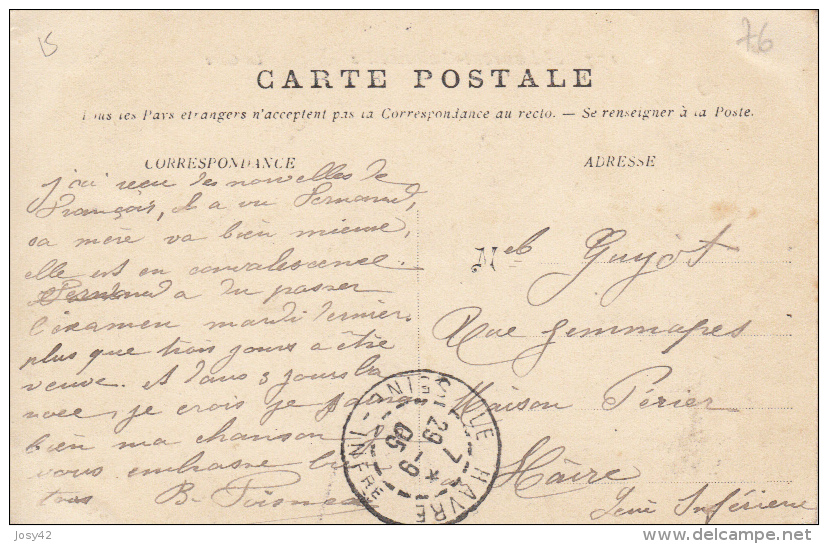 15
76
CARTE POSTALE
Tous les Pays étrangers n'acceptent pas la Correspondance au recto. — Se renseigner à la Poste.
CORRESPONDANCE
ADRESSE
j'ai reçu des nouvelles de
François, il a vu Fernand,
sa mère va bien mieux,
elle est en convalescence.
Fernand a du passer
l'examen mardi dernier.
plus que trois jours a être
veuve. et dans 3 jours la
noce, je crois je
bien ma chanson
vous embrasse
tous B.
Melle Guyot
Rue Gemmapes
Maison Périer
Hâvre
Seine Inférieure
LE HAVRE
7
29 -9
05
Josy42
www.delcampe.net